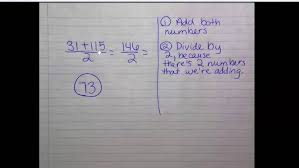 31+115/2 = 146/2 =
73
① Add both
numbers
② Divide by
2, because
there's 2 numbers
that we're adding.